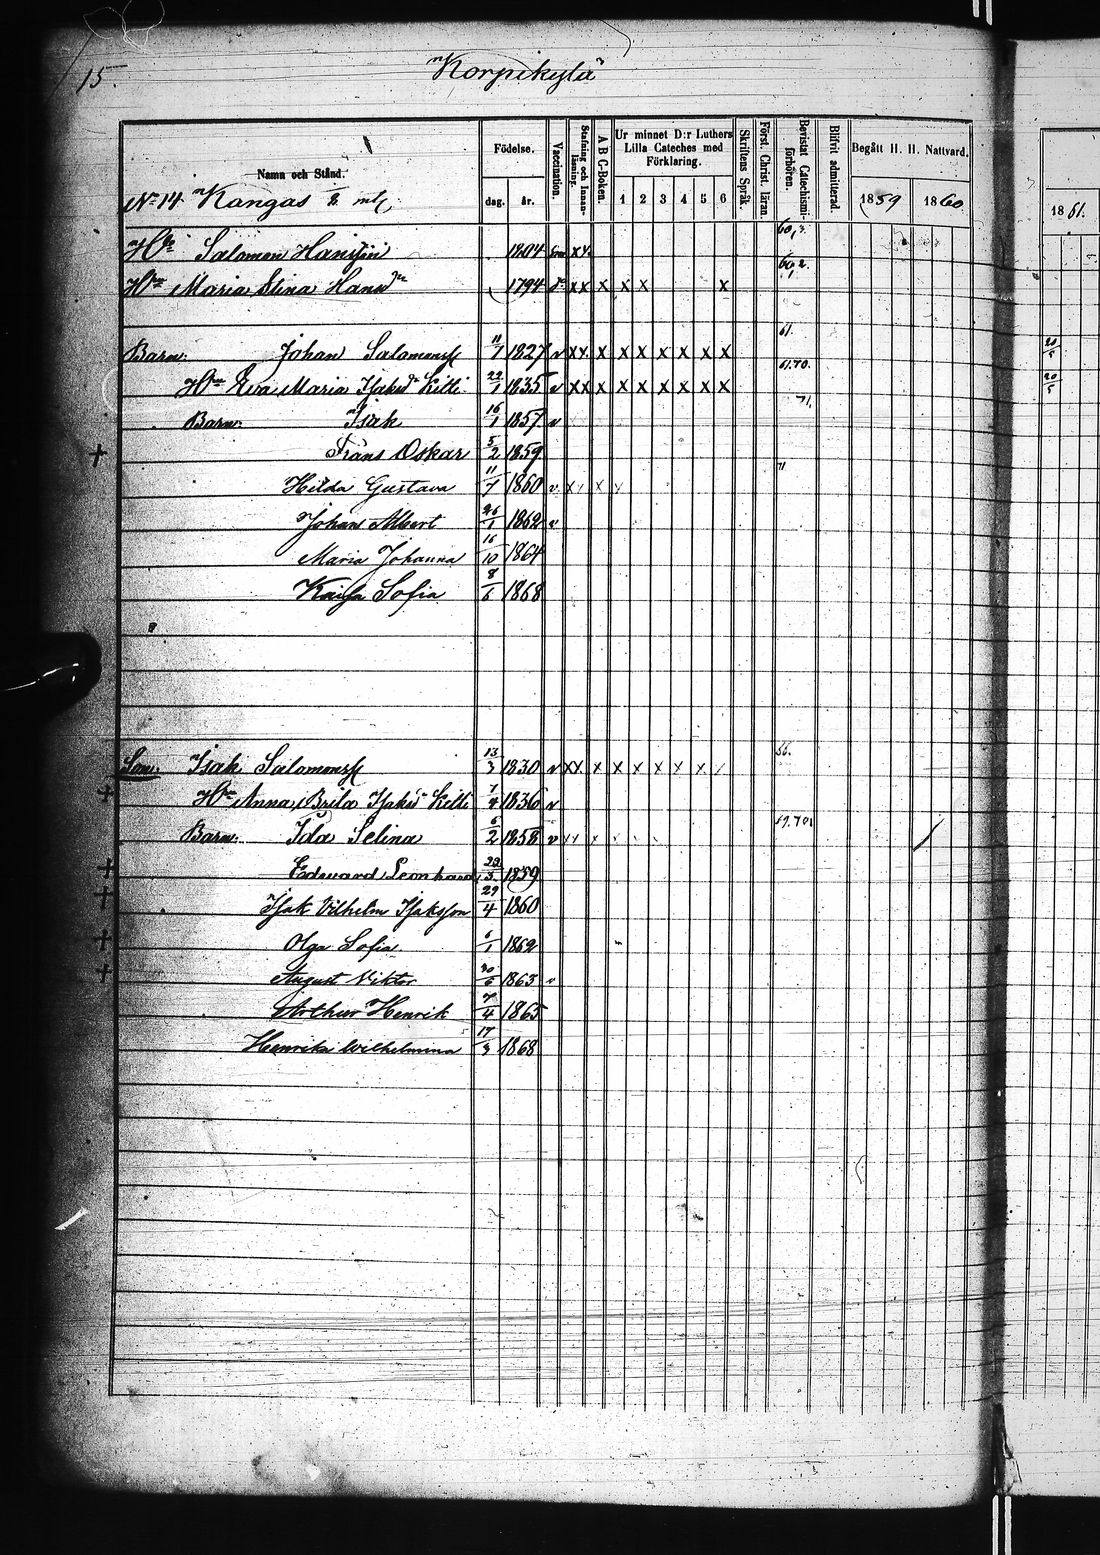 15.
Korpikylä
Namn och Stånd.
Födelse.
dag. år.
Vaccination.
Stafning och Innanläsning.
A B C-Boken.
Ur minnet D:r Luthers Lilla Cateches med Förklaring.
1 2 3 4 5 6
Skriftens Språk.
Först. Christ. läran.
Bevistat Catechismiförhören.
Blifvit admitterad.
Begått H. H. Nattvard.
1859 1860
1861.
No 14 Kangas
Salomon Hansson 1804 x x 60,
Hu Maria Stina Hansdr 1794 x x x x x x 60, 2.
Barn: Johan Salomonss 11/1 1827 v x x x x x x x x x 61. 20/5
Hu Eva Maria Isaksdr Kitti 22/1 1835 v x x x x x x x x x 61.70. 20/5
Barn: Isak 16/1 1857 v 71,
+ Frans Oskar 5/2 1859
Hilda Gustava 11/7 1860 v x x x x 71
Johan Albert 26/1 1862 v
Maria Johanna 16/10 1864
Kaisa Sofia 8/6 1868
Son. Isak Salomonss 13/3 1830 v x x x x x x x x 56.
+ Hu Anna Brita Isaksdr Kitti 1/4 1836 v
Barn: Ida Selina 6/2 1858 v x x x
+ Edouard Leonhard 1859
+ Isak Vilhelm Isaksson 29/4 1860
+ Olga Sofia 6/1 1862
+ August Viktor 30/6 1863 v
Arthur Henrik 7/4 1865
Henrika Wilhelmina 17/3 1868